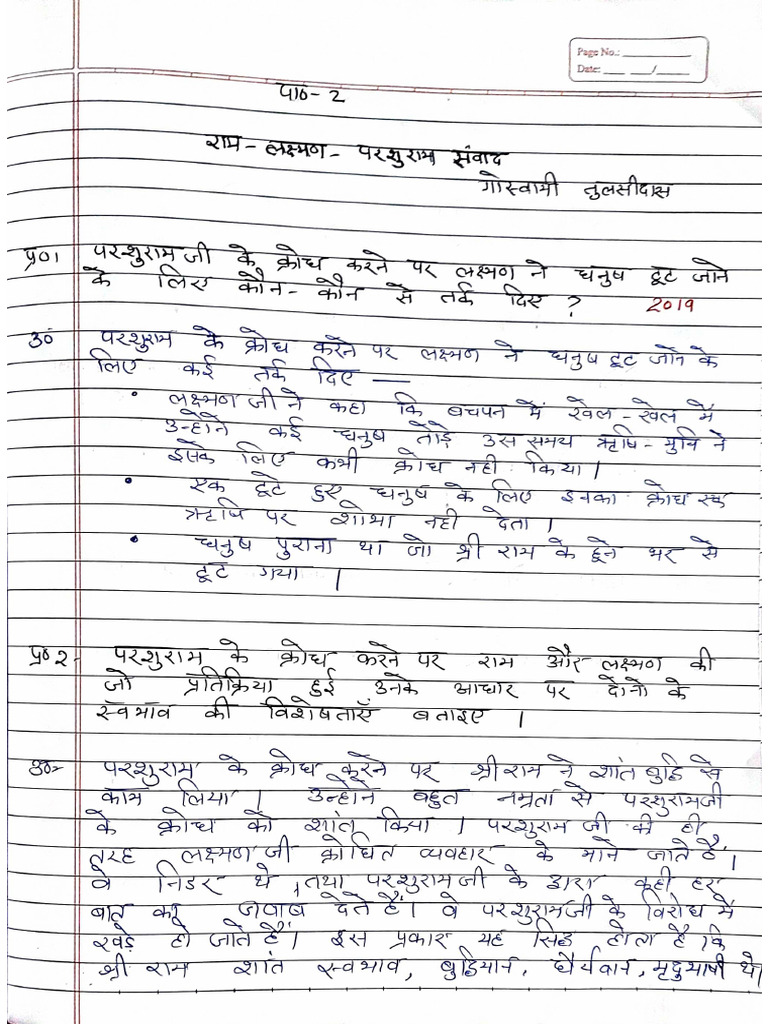 Page No.:
Date:
पाठ-2
राम-लक्ष्मण-परशुराम संवाद
गोस्वामी तुलसीदास
प्र०। परशुरामजी के क्रोध करने पर लक्ष्मण ने धनुष टूट जाने
के लिए कौन-कौन से तर्क दिए ? 2019
उ० परशुराम के क्रोध करने पर लक्ष्मण ने धनुष टूट जाने के
लिए कई तर्क दिए —
• लक्ष्मणजी ने कहा कि बचपन में खेल-खेल में
उन्होंने कई धनुष तोड़े उस समय ऋषि-मुनि ने
इसके लिए कभी क्रोध नही किया।
• एक टूटे हुए धनुष के लिए इनका क्रोध
ऋषि पर शोभा नही देता।
• धनुष पुराना था जो श्री राम के छूने भर से
टूट गया ।
प्र० 2- परशुराम के क्रोध करने पर राम और लक्ष्मण की
जो प्रतिक्रिया हुई उनके आधार पर दोनो के
स्वभाव की विशेषताएँ बताइए ।
उ०- परशुराम के क्रोध करने पर श्रीराम ने शांत बुद्धि से
काम लिया। उन्होंने बहुत नम्रता से परशुरामजी
के क्रोध को शांत किया । परशुराम जी की ही
तरह लक्ष्मणजी क्रोधित व्यवहार के माने जाते है।
वे निडर थे, तथा परशुरामजी के द्वारा कही हर
बात का जवाब देते हैं। वे परशुरामजी के विरोध में
खड़े हो जाते हैं। इस प्रकार यह सिद्ध होता है कि
श्री राम शांत स्वभाव, बुद्धिमान, धैर्यवान, मृदुभाषी थे।